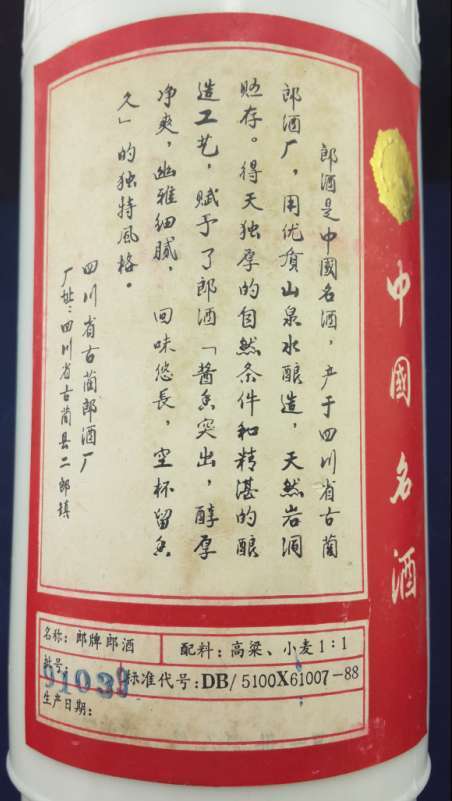 郎酒是中國名酒，产于四川省古蔺
郎酒厂，用优质山泉水酿造，天然岩洞
贮存。得天独厚的自然条件和精湛的酿
造工艺，赋予了郎酒「醬香突出，醇厚
净爽，幽雅细腻，回味悠長，空杯留香
久」的独特风格。
四川省古蔺郎酒厂
厂址：四川省古蔺县二郎镇
中國名酒
名称：郎牌郎酒
配料：高粱、小麦1：1
批号：
标准代号：DB/5100X61007-88
生产日期：